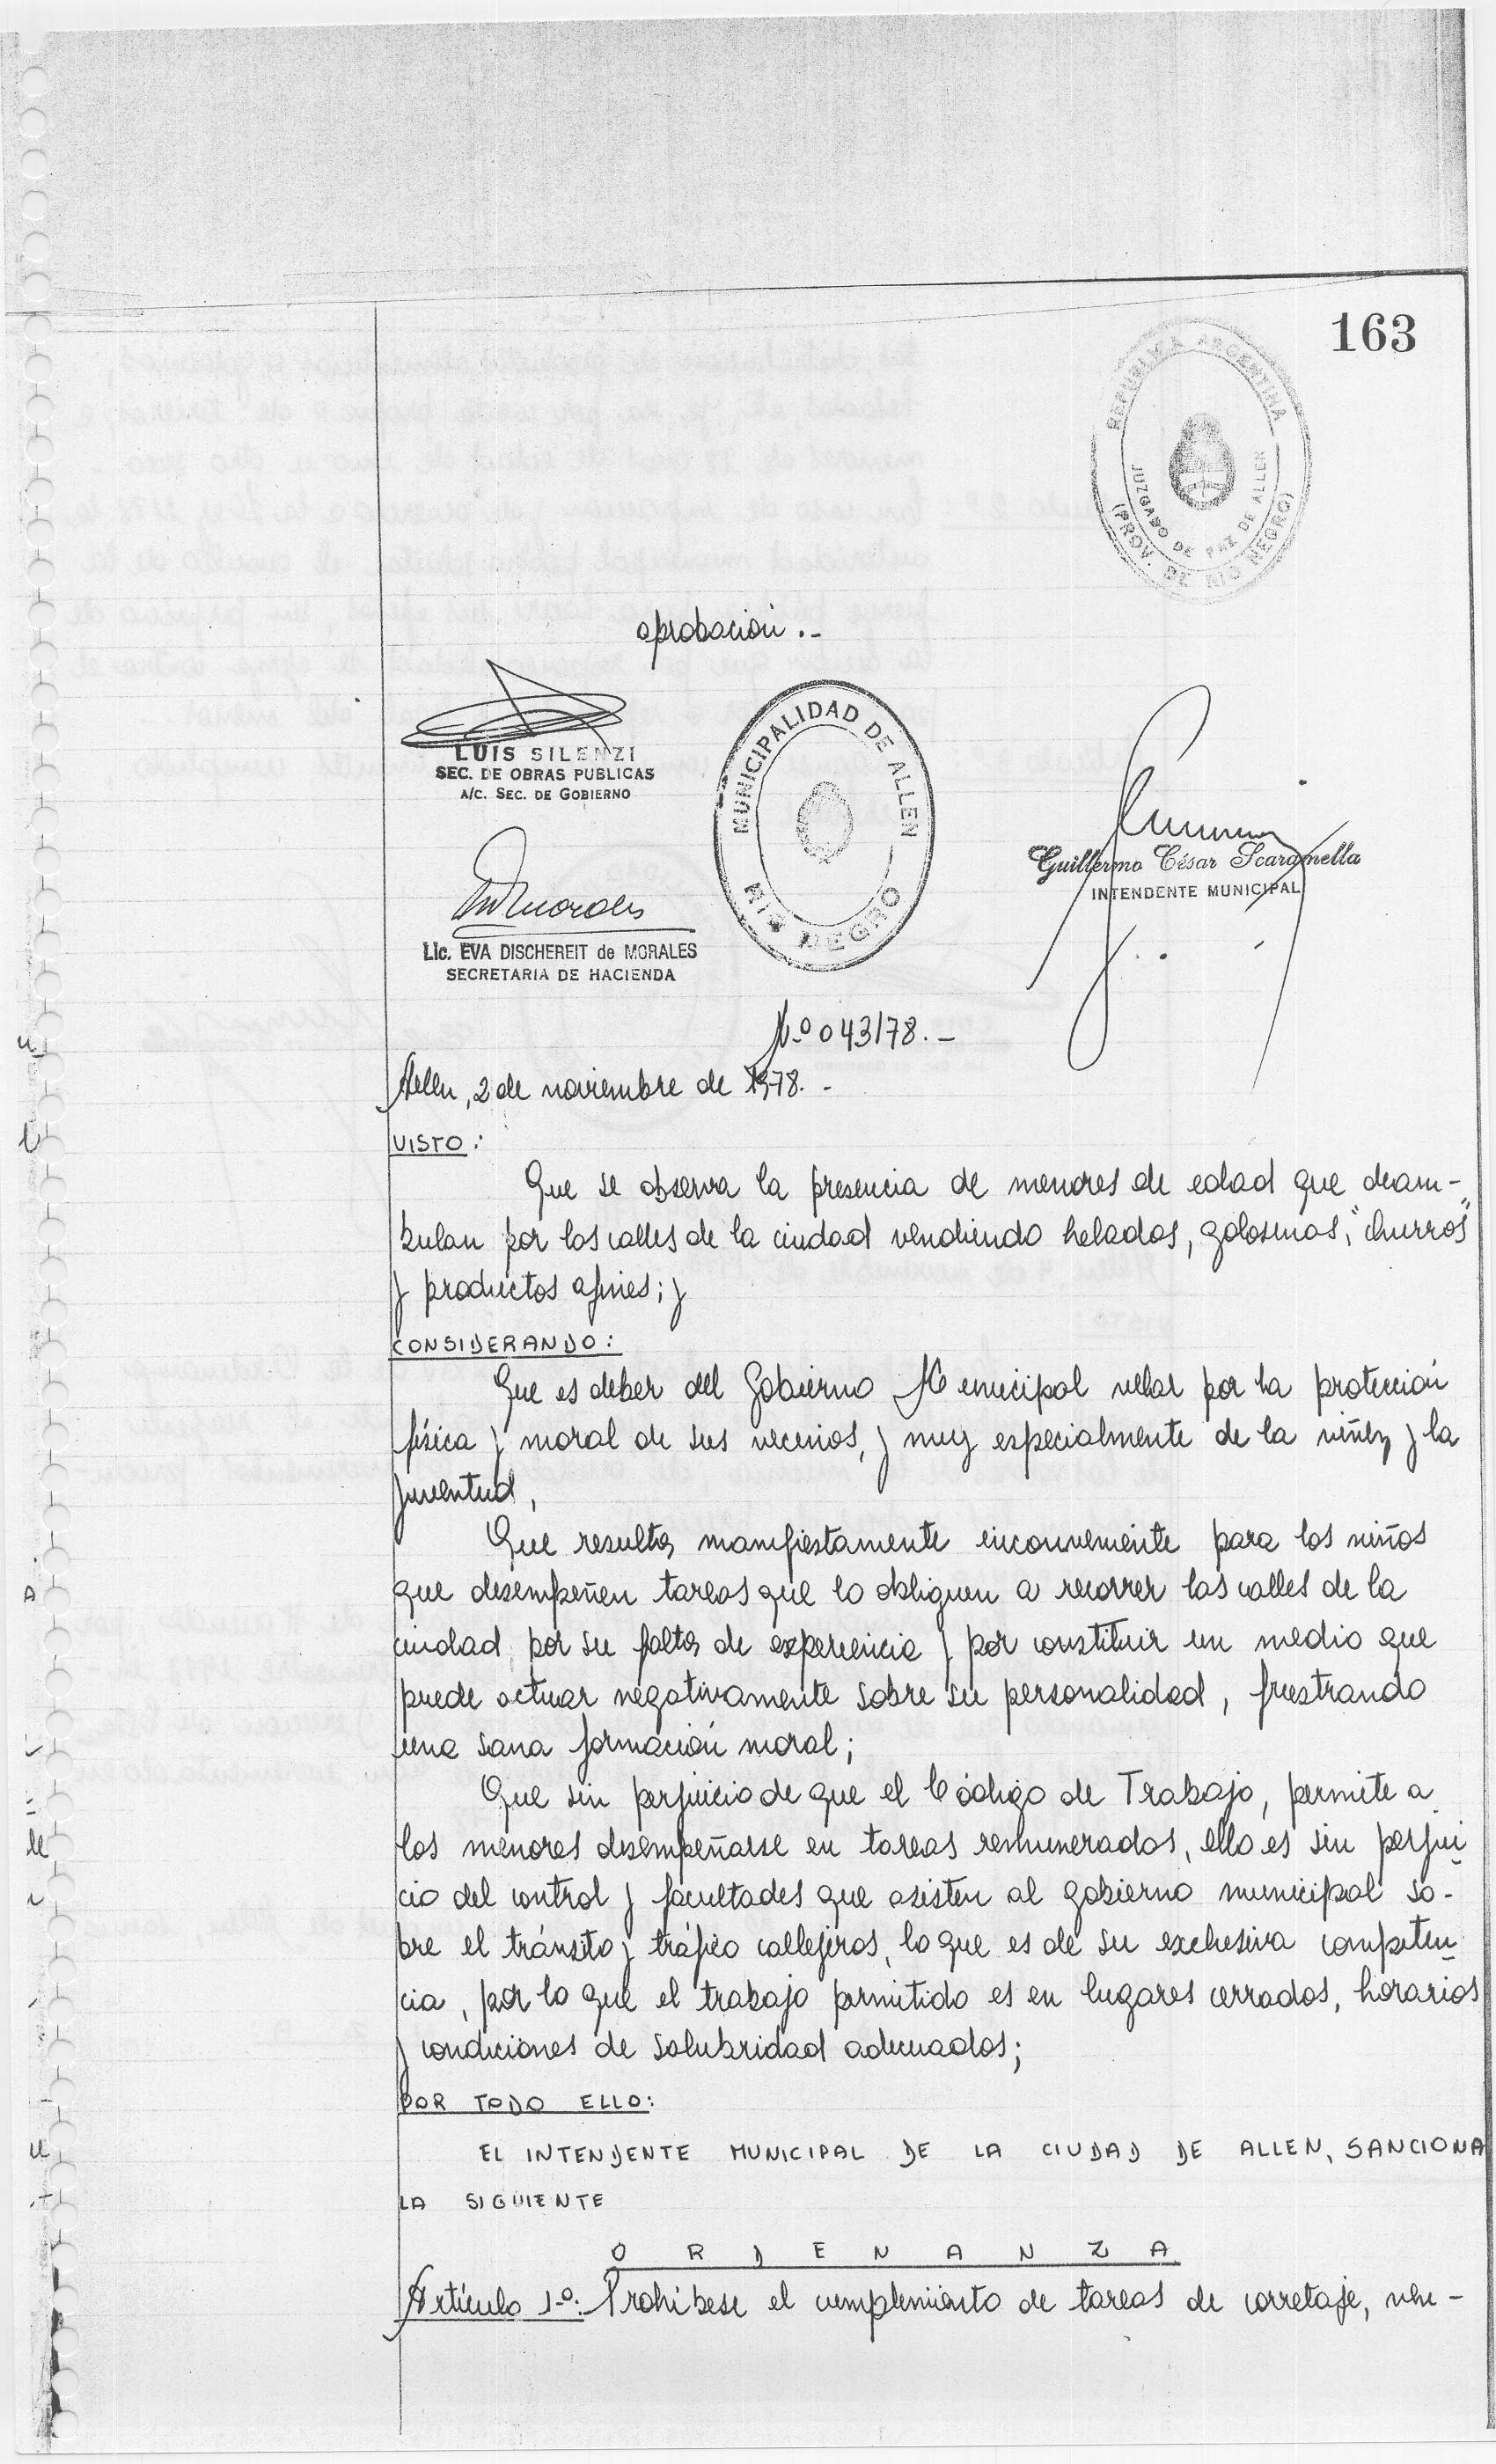 163
REPUBLICA ARGENTINA
JUZGADO DE PAZ DE ALLEN
(PROV. DE RIO NEGRO)
aprobación.-
LUIS SILENZI
SEC. DE OBRAS PUBLICAS
A/C. SEC. DE GOBIERNO
MUNICIPALIDAD DE ALLEN
RIO NEGRO
Guillermo César Scaramella
INTENDENTE MUNICIPAL
Lic. EVA DISCHEREIT de MORALES
SECRETARIA DE HACIENDA
N.º 043/78.-
Allen, 2 de noviembre de 1978.-
VISTO:
Que se observa la presencia de menores de edad que deam-
bulan por las calles de la ciudad vendiendo helados, golosinas, "churros"
y productos afines; y
CONSIDERANDO:
Que es deber del Gobierno Municipal velar por la protección
física y moral de sus vecinos, y muy especialmente de la niñez y la
juventud,
Que resulta manifiestamente inconveniente para los niños
que desempeñen tareas que lo obliguen a recorrer las calles de la
ciudad por su falta de experiencia y por constituir un medio que
puede actuar negativamente sobre su personalidad, frustrando
una sana formación moral;
Que sin perjuicio de que el Código de Trabajo, permite a
los menores desempeñarse en tareas remuneradas, ello es sin perjui
cio del control y facultades que asisten al gobierno municipal so-
bre el tránsito y tráfico callejeros, lo que es de su exclusiva competen
cia, por lo que el trabajo permitido es en lugares cerrados, horarios
y condiciones de salubridad adecuados;
POR TODO ELLO:
EL INTENDENTE MUNICIPAL DE LA CIUDAD DE ALLEN, SANCIONA
LA SIGUIENTE
O R D E N A N Z A
Artículo 1º: Prohíbese el cumplimiento de tareas de corretaje,